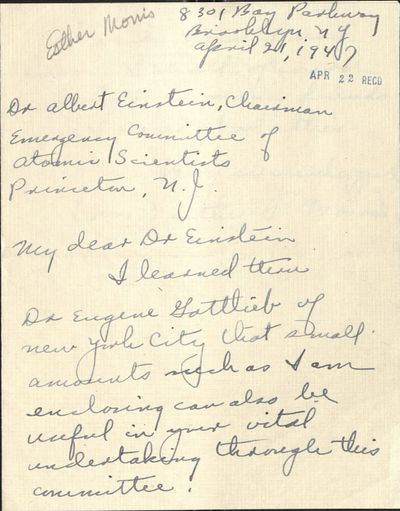 Esther Morris
8301 Bay Parkway
Brooklyn, NY
April 21, 1947
APR 22 RECD
Dr Albert Einstein, Chairman
Emergency Committee of
Atomic Scientists
Princeton, N.J.
My dear Dr Einstein
I learned thru
Dr Eugene Gottlieb of
New York City that small
amounts such as I am
enclosing can also be
useful in your vital
undertaking through this
committee!